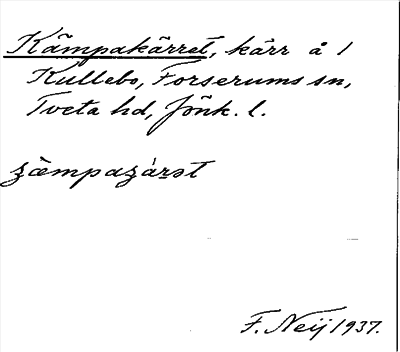 Kämpakärret, kärr å 1
Kullebo, Forserums sn,
Tveta hd, Jönk. l.
ʒæmpaʒárət
F. Neij 1937.